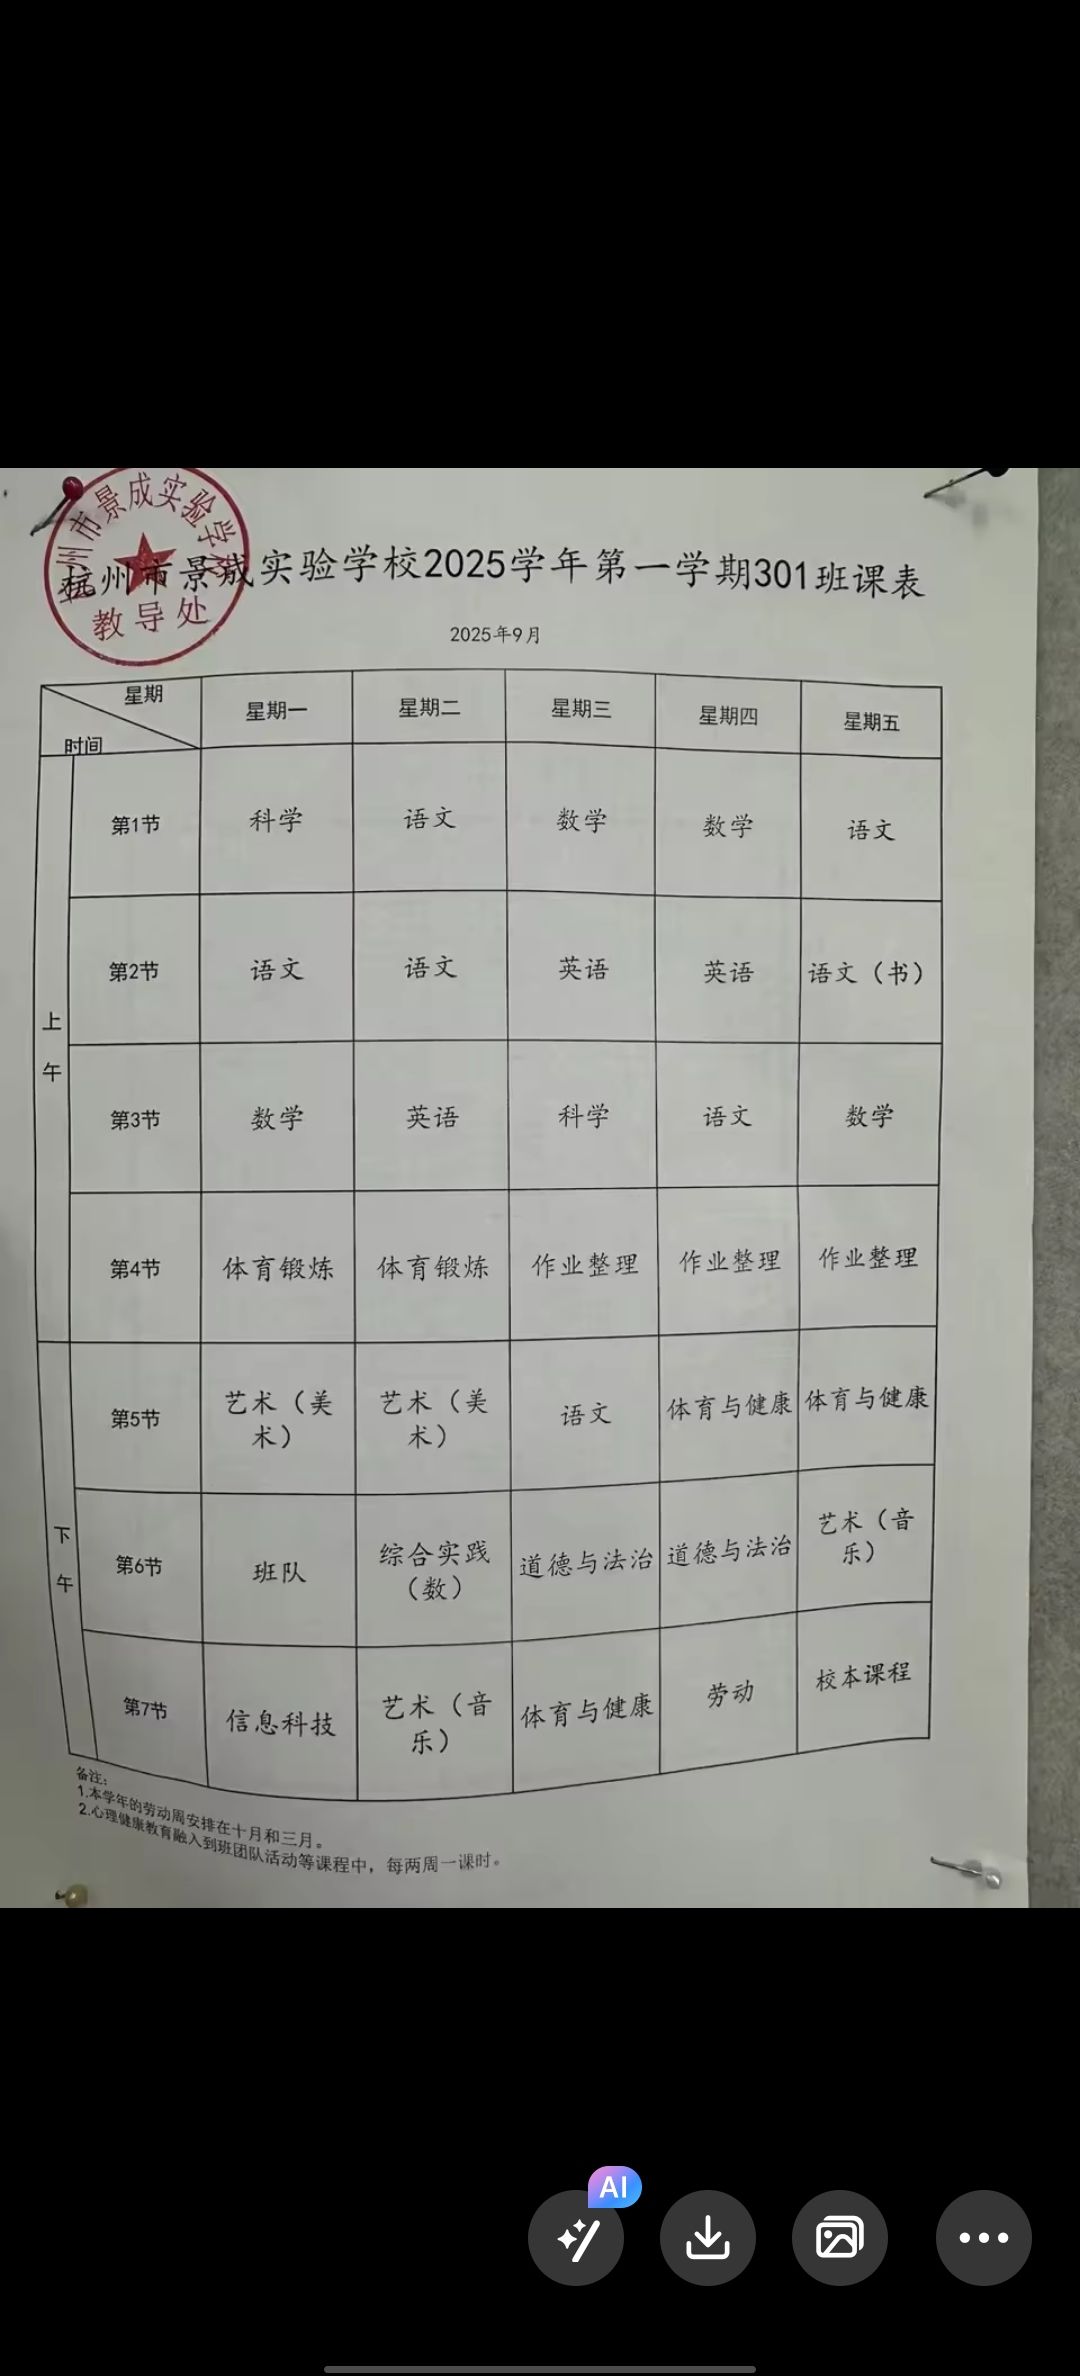 杭州市景成实验学校
教导处
杭州市景成实验学校2025学年第一学期301班课表
2025年9月
星期 时间 星期一 星期二 星期三 星期四 星期五
上午
第1节 科学 语文 数学 数学 语文
第2节 语文 语文 英语 英语 语文（书）
第3节 数学 英语 科学 语文 数学
第4节 体育锻炼 体育锻炼 作业整理 作业整理 作业整理
下午
第5节 艺术（美术） 艺术（美术） 语文 体育与健康 体育与健康
第6节 班队 综合实践（数） 道德与法治 道德与法治 艺术（音乐）
第7节 信息科技 艺术（音乐） 体育与健康 劳动 校本课程
备注：
1.本学年的劳动周安排在十月和三月。
2.心理健康教育融入到班团队活动等课程中，每两周一课时。
AI